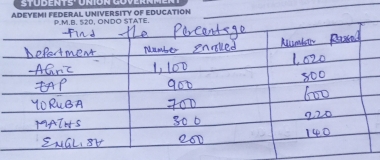 STUDENTS' UNION GOVERNMENT
ADEYEMI FEDERAL UNIVERSITY OF EDUCATION
P.M.B. 520, ONDO STATE.
Find the Percentage
Department Number enrolled Number Passed
AGRIC 1,100 1,020
EAP 900 800
YORUBA 700 600
MATHS 300 220
ENGLISH 200 140